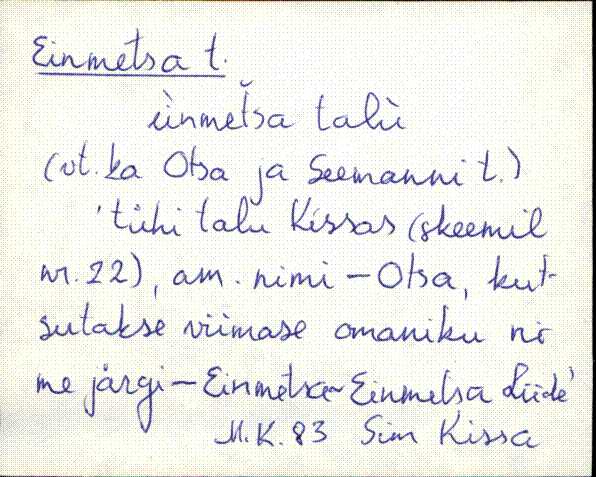 Einmetsa t.
èinmeťsa talù
(vt. ka Otsa ja Seemanni t.)
'tühi talu Kissas (skeemil
nr. 22), am. nimi – Otsa, kut-
sutakse viimase omaniku ni-
me järgi – Einmetsa ~ Einmetsa Liide'
M.K. 83 Sim Kissa